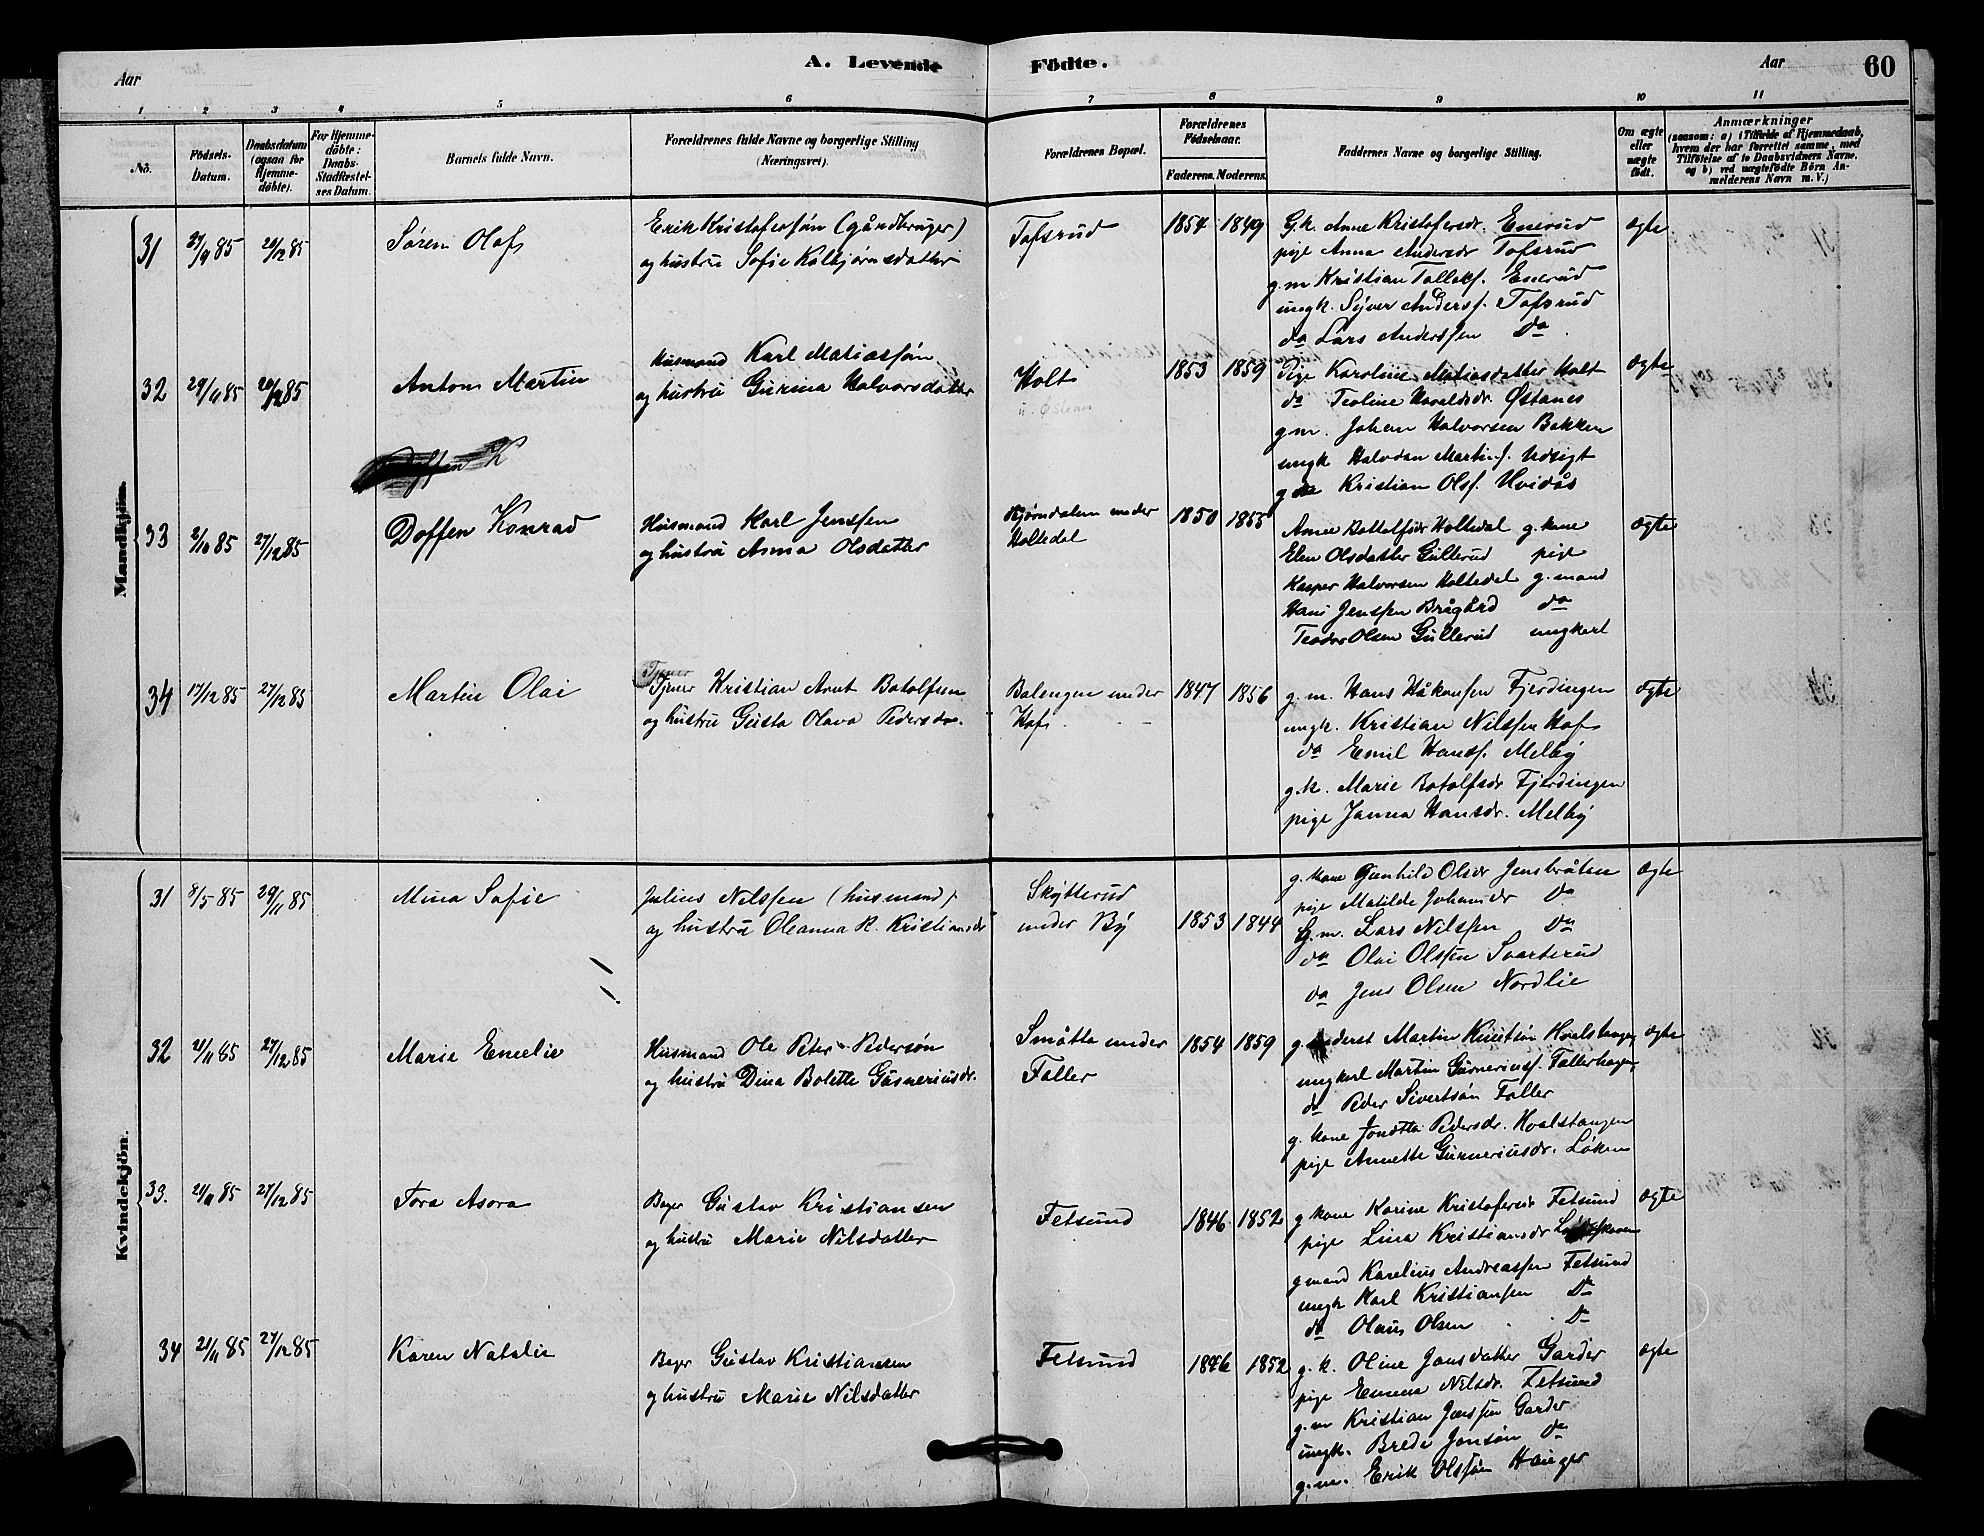 Aar
A. Levende Födte.
Aar
60
1 2 3 4 5 6 7 8 9 10 11
No.
Födsels-
Datum.
Daabsdatum
(ogsaa for
Hjemme-
döbte).
For Hjemme-
döbte:
Daabs-
Stadfæstel-
ses Datum.
Barnets fulde Navn.
Forældrenes fulde Navne og borgerlige Stilling
(Næringsvei).
Forældrenes Bopæl.
Forældrenes
Födselsaar.
Faderens. Moderens.
Faddernes Navne og borgerlige Stilling.
Om ægte
eller
uægte
födt.
Anmærkninger
(saasom: a) i Tilfælde af Hjemmedaab,
hvem der har forrettet samme, med
Tilföielse af to Daabsvidners Navne,
og b) ved uægtefödte Börn An-
melderens Navn m. V.)
Mandkjön.
31 27/9 85 26/12 85 Søren Olaf
Erik Kristofersøn (gårdbruger)
og hustru Sofie Kolbjørnsdatter
Tofsrud 1854 1849
G.k. Anne Kristofersdr. Enerud
pige Anna Andersdr Tofsrud
g.m Kristian Tollefs. Enerud
ungk. Syver Anders. Tofsrud
do Lars Anderssen Do
ægte
32 29/11 85 26/12 85 Anton Martin
Husmand Karl Matiassøn
og hustru Gurina Halvorsdatter
Holt
u. Østenes
1853 1859
Pige Karoline Matiasdatter Holt
do Teoline Haraldsdr. Østanes
g.m. Johan Halvorsen Bakken
ungk Halvdan Martins. Udsigt
g Kristian Ols. Hvidås
ægte
33 2/10 85 27/12 85 Doffen Konrad
Husmand Karl Jenssen
og hustru Anna Olsdatter
Bjørndalen under
Holtedal
1850 1855
Anne Bottolfsdr Holtedal g. kone
Elen Olsdatter Gullerud pige
Kasper Halvorsen Holtedal g. mand
Hans Jenssen Brågård do
Teodor Olsen Gullerud ungkarl
ægte
34 17/12 85 27/12 85 Martin Olai
Tjener
Tjener Kristian Arnt Botolfsen
og hustru Gusta Olava Pedersdr.
Bølengen under
Hof
1847 1856
g.m. Hans Håkonsen Fjerdingen
ungk. Kristian Nilssen Hof
do Emil Hanss. Melby
g.k. Marie Botolfsdr Fjerdingen
pige Janna Hansdr. Melby
ægte
Kvindekjön.
31 8/5 85 29/11 85 Mina Sofie
Julius Nilssen (husmand)
og hustru Oleanna K. Kristiansdr
Skytterud
under By
1853 1844
g. kone Gunhild Olsdr Jensbråten
pige Matilde Johansdr Do
G.m. Lars Nilssen Do
do Olai Olssen Svarterud
do Jens Olsen Nordlie
ægte
32 2/11 85 27/12 85 Marie Emelie
Husmand Ole Peter Pedersøn
og hustru Dina Bolette Gusneriusdr.
Småtta under
Faller
1854 1859
g. Martin Knutsøn Hvalstangen
ungkarl Martin Gurnerius. Fallerhagen
do Peder Sivertsøn Faller
g. kone Jonetta Pedersdr. Hvalstangen
pige Annette Gurneriusdr. Løken
ægte
33. 21/11 85 27/12 85 Tora Asora
Bager Gustav Kristiansen
og hustru Marie Nilsdatter
Fetsund 1846 1852
g kone Karine Kristofersdr Fetsund
pige Lina Kristiansdr
gmand Karelius Andreassen Fetsund
ungk Karl Kristiansen Do
do Olaus Olsen Do
ægte
34 21/11 85 27/12 85 Karen Natalie
Bager Gustav Kristiansen
og hustru Marie Nilsdatter
Fetsund 1846 1852
g.k. Oline Jonsdatter Garder
pige Emma Nilsdr. Fetsund
g.m Kristian Jonssen Garder
ungk. Brede Jonsøn Do
g.m. Erik Olssøn Hauger
ægte